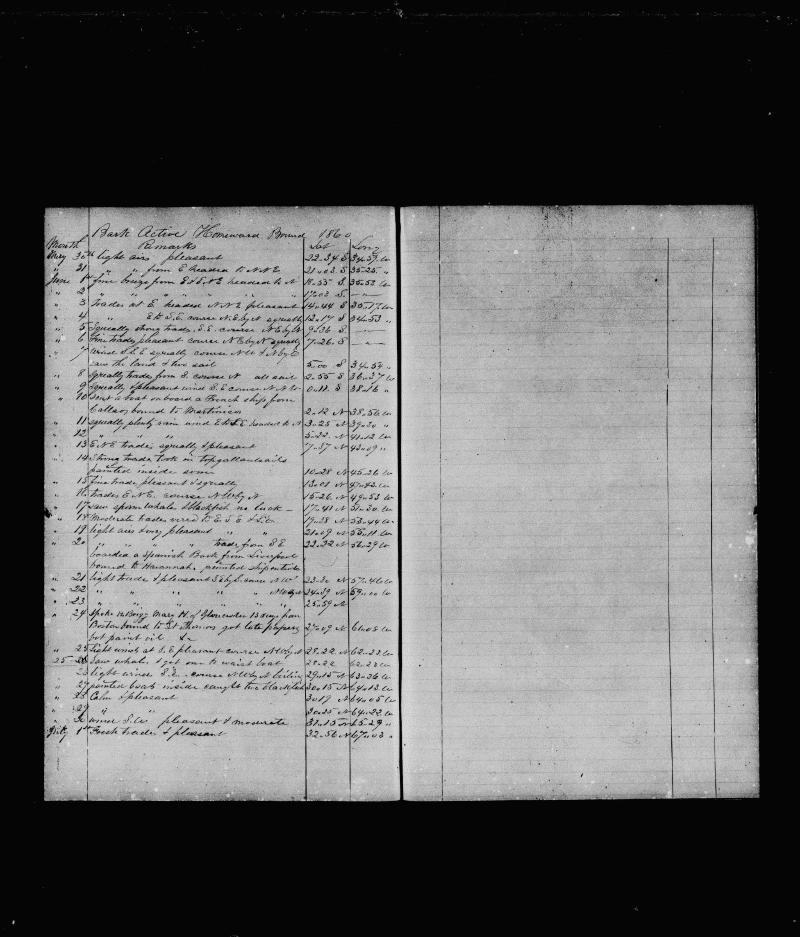 Bark Active Homeward Bound 1860
Month Remarks Lat Long
May 30th light airs pleasant 22..34 S 34..37 W
" 31 " " from E headed to N.N.E 21..03 S 35..25 "
June 1st fine breeze from E & E.N.E headed to N 18..55 S 35..52 W
" 2 " " " " " " 17..03 S — —
" 3 Trades at E headed N.N.E pleasant 14..44 S 35..17 W
" 4 " E to S.E. course N.E by N squally 12..17 S 34..53 "
" 5 Squally strong trades, S.E. course N.E by N 9..36 S — —
" 6 Fine trades pleasant course N.E by N squally 7..26 S — —
" 7 wind S.S.E squally course N.W & N by E
saw the land & two sail 5..00 S 34..54 "
" 8 Squally trades from S. course N sail 2..55 S 36..37 W
" 9 Squally & pleasant wind S.E course N.N.W 0..11 S 38..16 "
" 10 Sent a boat onboard a French ship from
Callao bound to Martinico 2..12 N 38..56 W
" 11 squally plenty rain wind E to S.E headed to N 3..25 N 39..30 "
" 12 " " " 5..22 N 41..12 W
" 13 E.N.E trades squally & pleasant 7..37 N 43..09 "
" 14 Strong trades took in topgallantsails
painted inside some 10..28 N 45..26 W
" 15 Fine trade pleasant & squally 13..01 N 47..42 W
" 16 trades E.N.E. course N.W by N 15..26 N 49..53 W
" 17 saw sperm whales & blackfish no luck — 17..41 N 51..30 W
" 18 Moderate trades veered to E.S.E & S.E. 19..28 N 53..44 W
" 19 light airs & very pleasant " " 21..09 N 55..11 W
" 20 " " " " trades from S.E 22..32 N 56..29 W
boarded a Spanish Bark from Liverpool
bound to Havannah. painted ship outside
" 21 light trade & pleasant S.E by E. course N.W. 23..30 N 57..46 W
" 22 " " " " " " N.W by N 24..39 N 59..00 W
" 23 " " " " " " 25..59 N
" 24 Spoke Brig Mary H. of Gloucester 13 days from
Boston bound to St Thomas got late papers
bot paint oil &c 27..09 N 61..08 W
" 25 Light winds at S.E pleasant course N.W by N 28..22 N 62..23 W
25 Saw whales & got one to waist boat 28..22 62..23 W
light winds S.E. course N.W by N boiling 29..15 N 63..36 W
" 27 painted boats inside caught two blackfish 30..15 N 64..12 W
" 28 Calm & pleasant 30..19 N 64..05 W
" 29 " " 30..25 N 64..22 W
" 30 winds S.W. pleasant & moderate 31..15 N 65..29 "
July 1st Fresh trades & pleasant 32..56 N 67..03 "